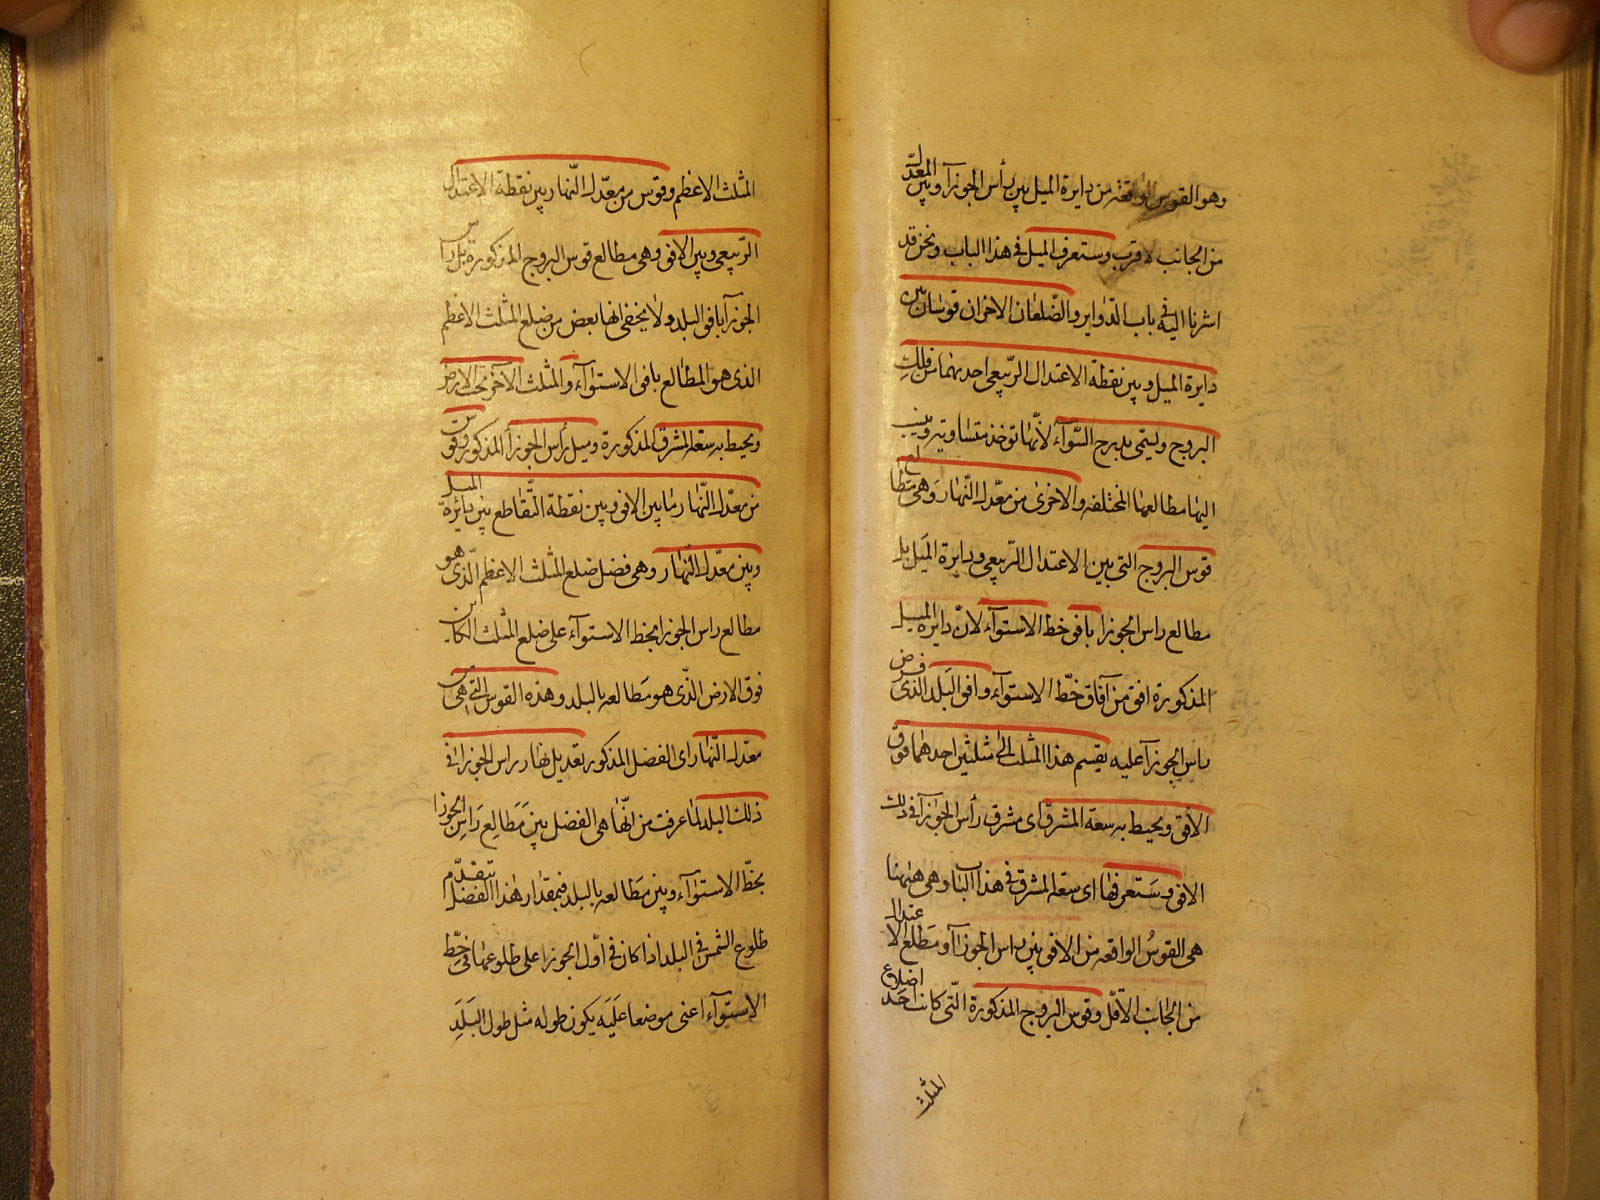 وهو القوس الواقعة من دايرة الميل بين رأس الجوزآ وبين المعدّل
من الجانب لاقرب وستعرف الميل فى هذا الباب ونحن قد
اشرنا اليه فى باب الدّواير والضّلعان الاخران قوسان بين
دايرة الميل وبين نقطة الاعتدال الرّبيعى احديهما من فلك
البروج وليسمّى بدرج السّوآء لانّها توخذ متساوية وينسب
اليها مطالعها المختلفه والاخرىٰ من معدّل النّهار وهى مطالع
قوس البروج التى بين الاعتدال الرّبيعى ودايرة الميل بل
مطالع راس الجوزا بافق خط الاستوآء لانّ دايرة الميل
المذكورة افق من آفاق خطّ الاستوآء وافق البلد الذى فرض
راس الجوزآ عليه يقسم هذا المثلث الى مثلثين احدهما فوق
الافق ويحيط به سعة المشرق اى مشرق رأس الجوزآ فى ذلك
الافق وستعرفها اى سعة المشرق فى هذا الباب وهى هيٰهنا
هى القوسُ الواقعه من الافق بين راس الجوزآ ومطلع الاعتدال
من الجانب الاقلّ وقوس البروج المذكورة الّتى كانت احد اضلاع
المثلث
المثلث الاعظم وقوس من معدّل النّهار بين نقطة الاعتدال
الرّبيعى وبين الافق وهى مطالع قوس البروج المذكورة بل رأس
الجوزآ بافق البلد ولا يخفى انها بعض من ضلع المثلث الاعظم
الذى هو المطالع بافق الاستوآء والمثلث الآخر تحت الارض
ويحيط به سعة المشرق المذكورة وميل رأس الجوزآ المذكور وقوس
من معدّل النّهار ما بين الافق وبين نقطة التّقاطع بين دائرة الميل
وبين معدّل النّهار وهى فضل ضلع المثلث الاعظم الّذى هو
مطالع راس الجوزا بخط الاستوآء على ضلع المثلث الكاين
فوق الارض الّذى هو مطالعه بالبلد وهذه القوس التى هى من
معدّل النّهار اى الفضل المذكور تعديل نهار راس الجوزا فى
ذلك البلد لما عرفت من انّها هى الفضل بين مَطَالِع رَاسِ الجوزا
بخطّ الاستوآء وبين مَطالعه بالبلد فبمقدار هٰذا الفضل يتقدّم
طلوع الشمس فى البلد اذا كان فى اوّل الجوزا على طلوعها فى خطّ
الاستوآء اعنى موضعا عَلَيه يكون طوله مثل طول البَلَدِ